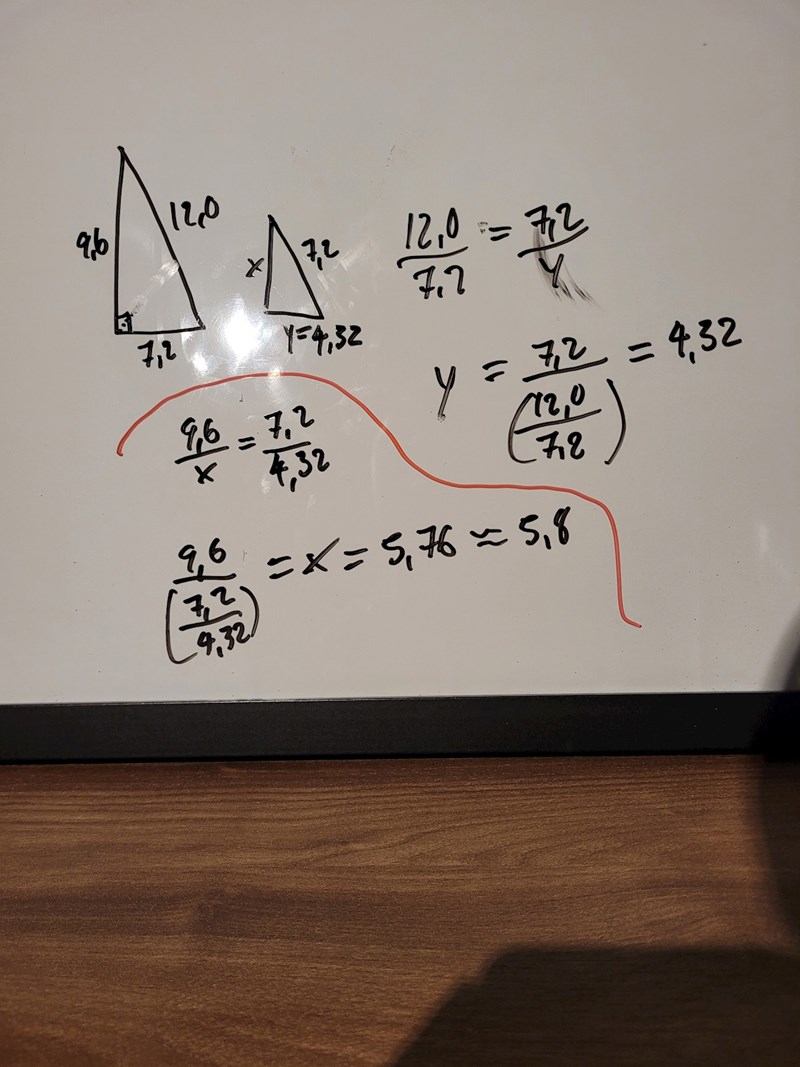 9,6
12,0
7,2
x
7,2
y=4,32
12,0/7,2 = 7,2/y
y = 7,2/(12,0/7,2) = 4,32
9,6/x = 7,2/4,32
9,6/(7,2/4,32) = x = 5,76 ≈ 5,8